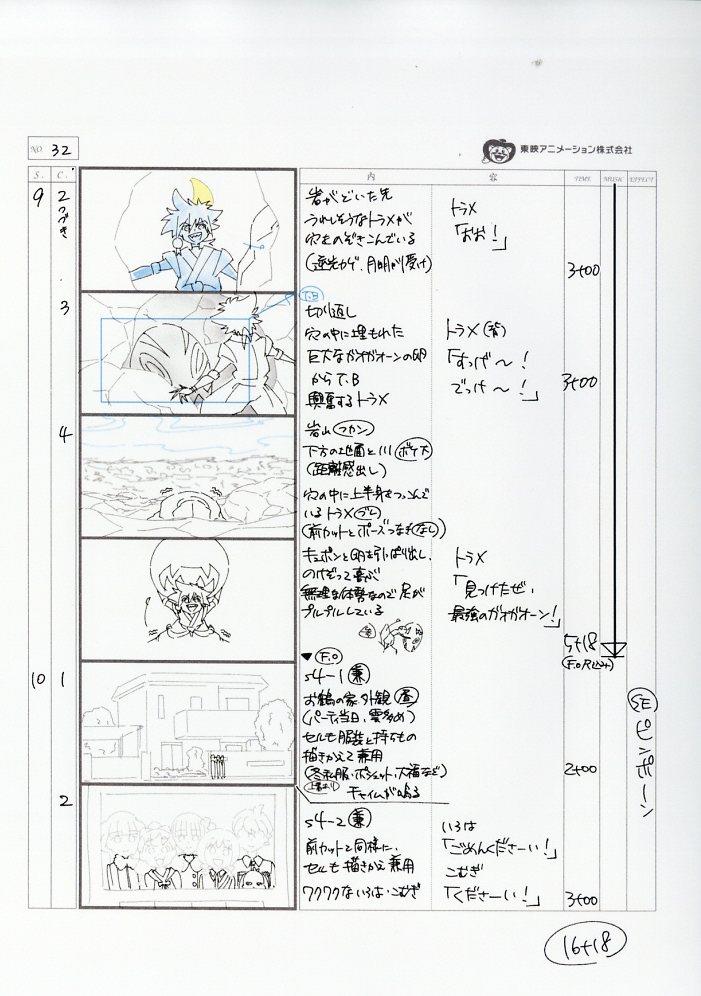 NO. 32
東映アニメーション株式会社
S. C. 内容 TIME MUSIC EFFECT
9 2 つづき
岩がどいた先
うれしそうなトラメが
穴をのぞきこんでいる
(逆光カゲ、月明かり受け)
トラメ
「おお!」
3+00
3
T.B
切り返し
穴の中に埋もれた
巨大なガオガオーンの卵
からT.B
興奮するトラメ
トラメ
「すっげ〜!
でっけ〜!」
3+00
4
岩山(フカン)
下方の地面と川(ボケ大)
(距離感出し)
穴の中に上半身をつっこんで
いるトラメ(ブレ)
(前カットとポーズつなぎなし)
キュポンと卵を引っぱり出し、
のけぞって喜ぶ
無理な体勢なので足が
プルプルしている
トラメ
「見つけたぜ、
最強のガオガオーン!」
5+18
(F.O.R込み)
▼ F.O
10 1
54-1 兼
お鶴の家 外観 昼
(パーティ当日、雲多め)
セルも服装と持ちもの
描きかえて兼用
(冬私服・ポシェット、大福など)
チャイムが鳴る
2+00
SE
ピンポーン
2
54-2 兼
前カットと同様に、
セルも描きかえ兼用
ワクワクないろは・こむぎ
いろは
「ごめんくださーい!」
こむぎ
「くださーい!」
3+00
16+18